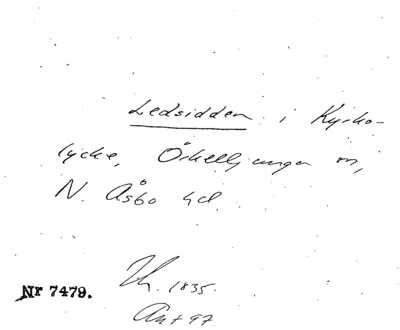 Ledsidden i Kyrko-
lycke, Örkelljunga sn,
N. Åsbo hd.
Nr 7479.
Th. 1835.
Ant 97